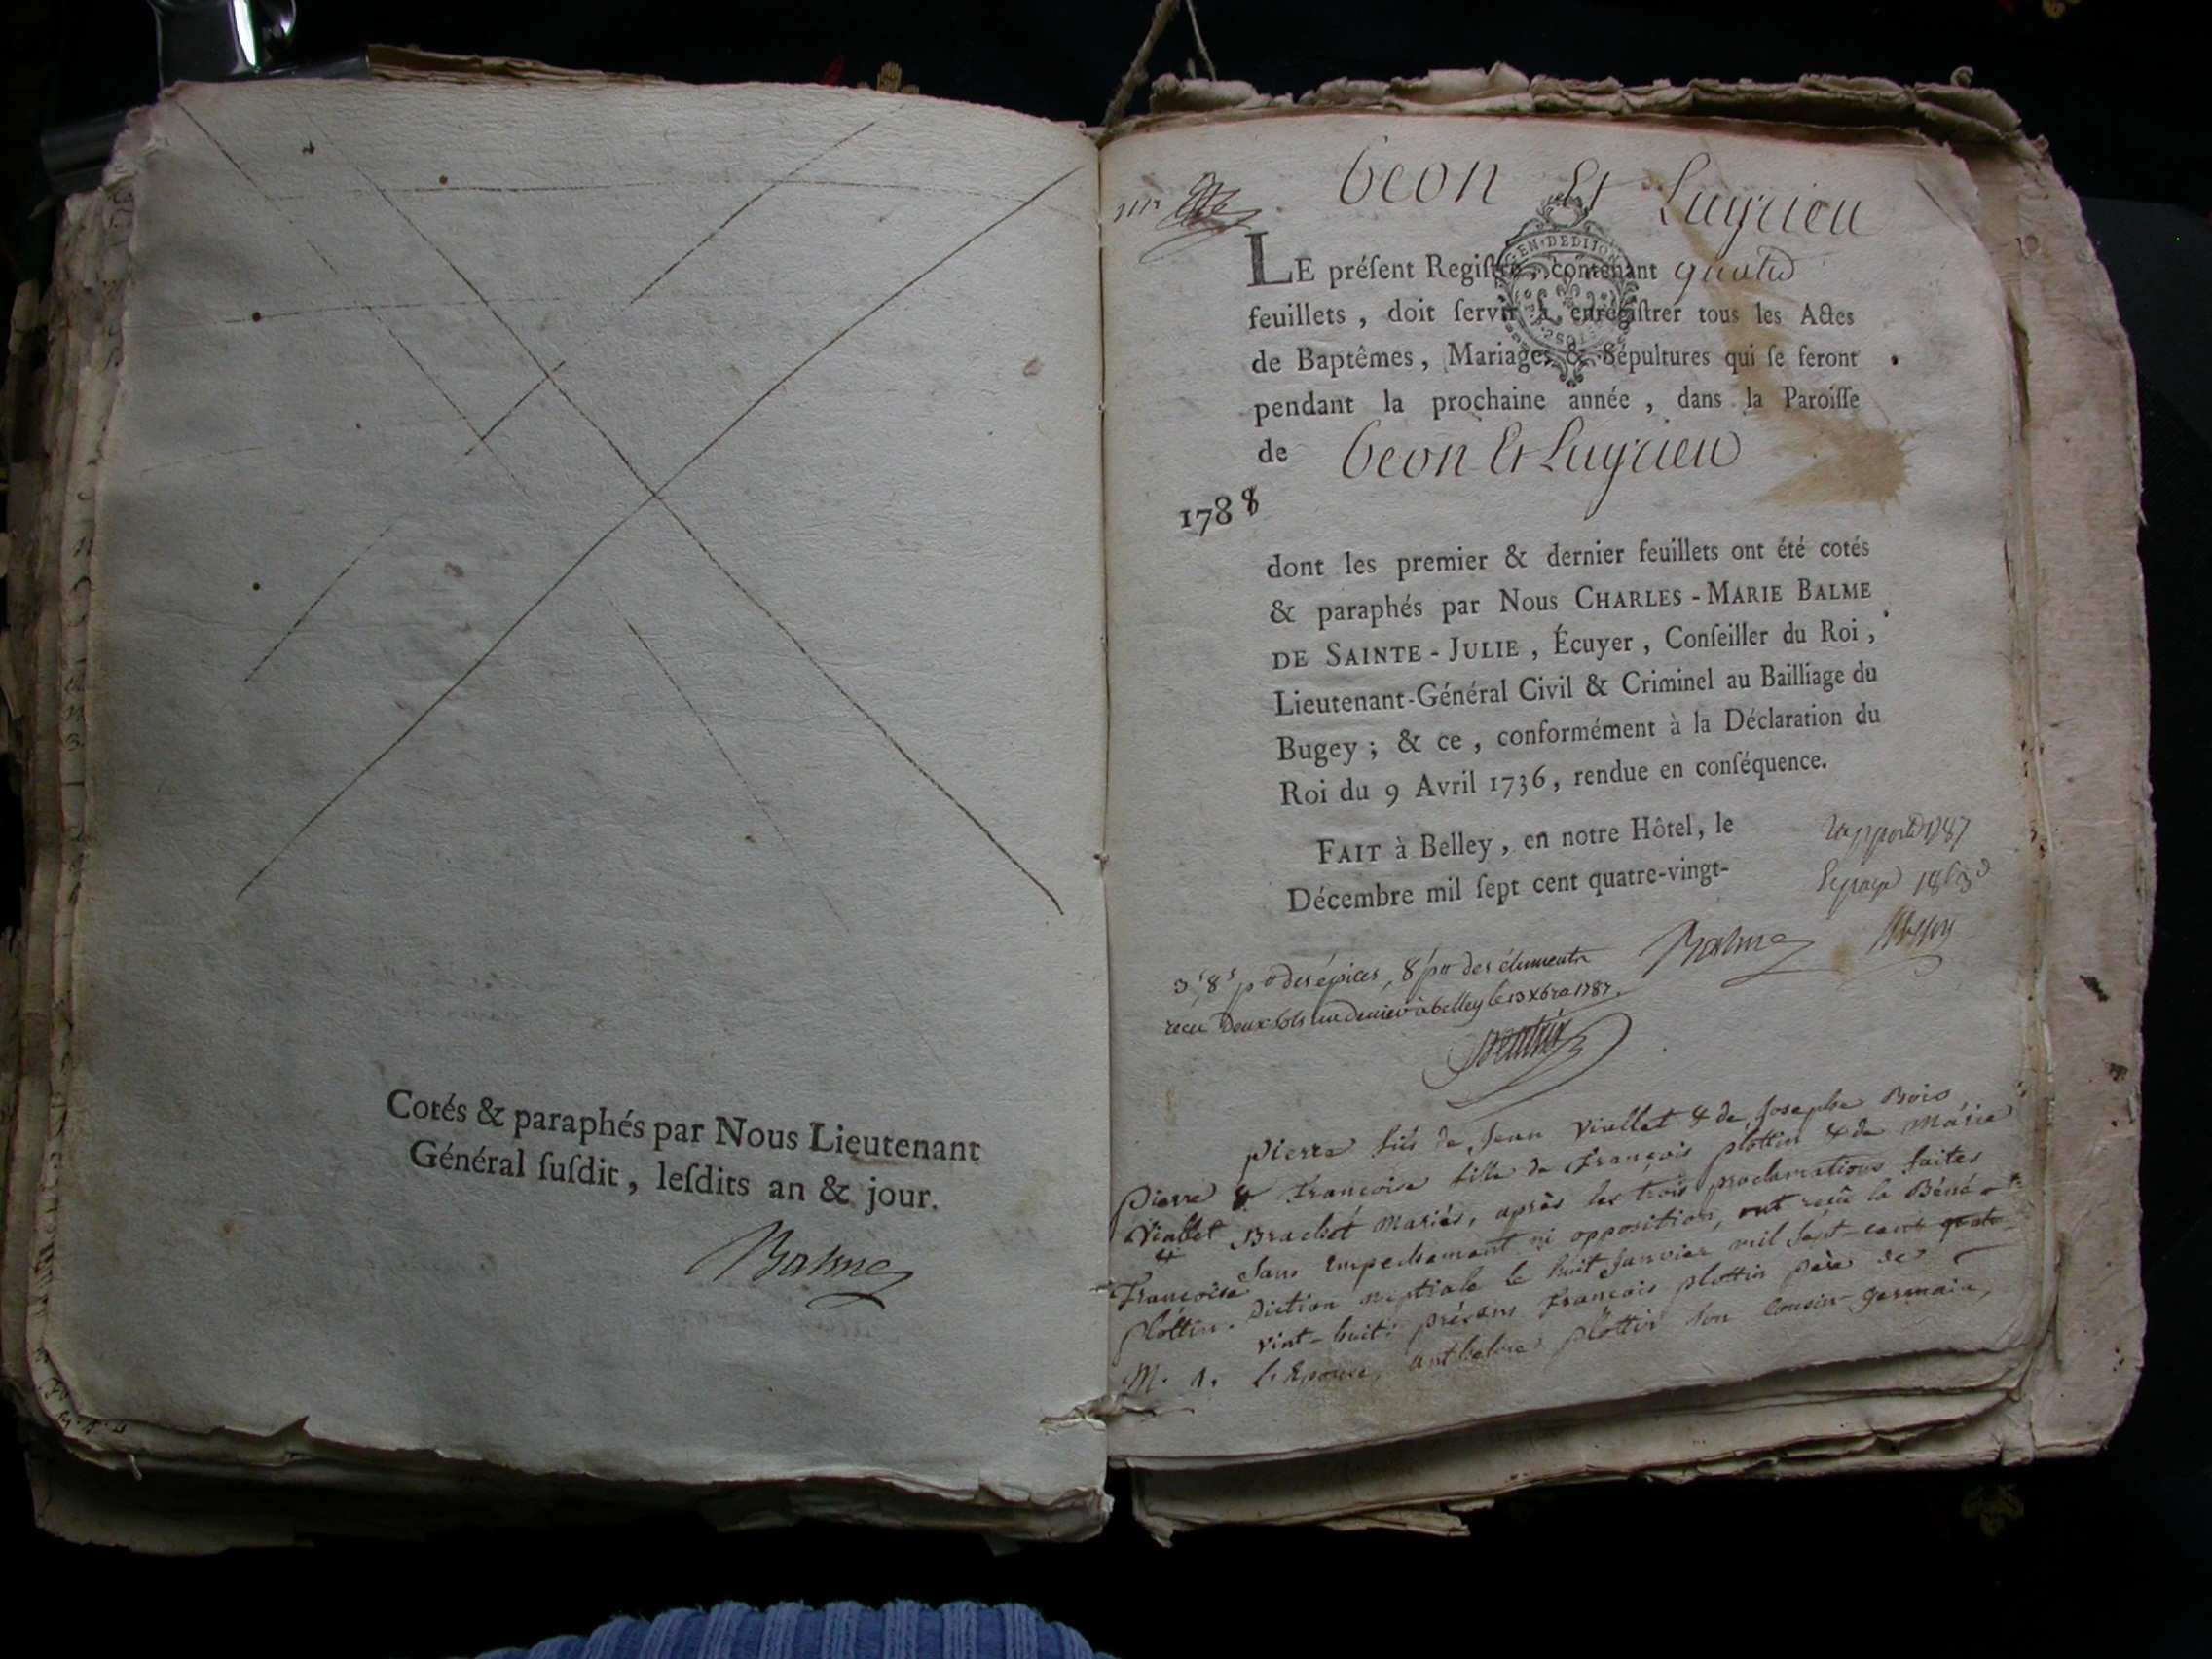 Cotés & paraphés par Nous Lieutenant
Général ſuſdit, leſdits an & jour.
Balme
Ceon Et Luyrieu
LE préſent Regiſtre, contenant quatre
feuillets, doit ſervir à enrégiſtrer tous les Actes
de Baptêmes, Mariages & Sépultures qui ſe feront
pendant la prochaine année, dans la Paroiſſe
de Ceon Et Luyrieu
1788
dont les premier & dernier feuillets ont été cotés
& paraphés par Nous CHARLES-MARIE BALME
DE SAINTE-JULIE, Écuyer, Conſeiller du Roi,
Lieutenant-Général Civil & Criminel au Bailliage du
Bugey; & ce, conformément à la Déclaration du
Roi du 9 Avril 1736, rendue en conſéquence.
FAIT à Belley, en notre Hôtel, le
Décembre mil ſept cent quatre-vingt-
Rapporté 1787
Balme
recu Deux sols un denier a belley le 13 Xbre 1787.
Pierre
Viallet
&
Françoise
plottin.
M. 1.
pierre fils de Jean Viallet & de Josephe Bois
& Françoise fille de François plottin & de Marie
Brachet Mariés, après les trois proclamations faites
Sans Empechement ni opposition, ont reçu la Béné-
diction nuptiale le huit Janvier mil sept-cent quatre-
vint-huit: présens François plottin père de
l'Epouse, anthelme plottin son Cousin-germain,